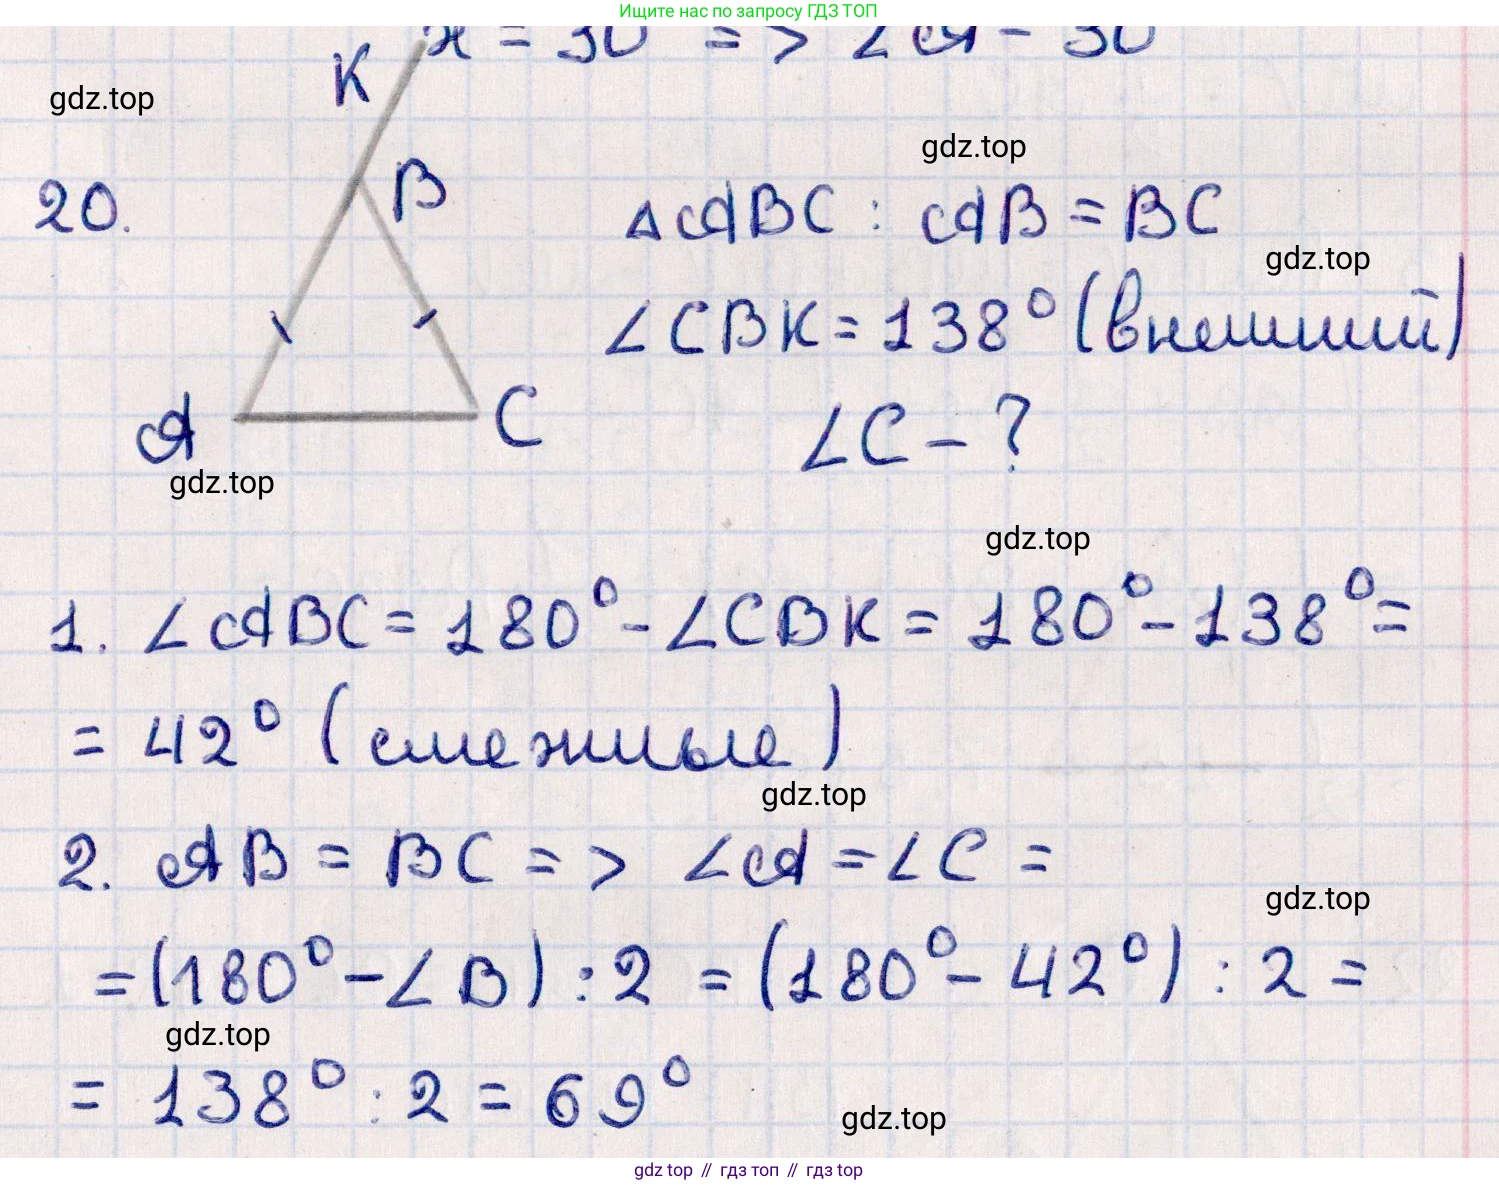 Ищите нас по запросу ГДЗ ТОП
= 30 => ∠A - 30
K
gdz.top
gdz.top
20.
B
△ABC : AB = BC
gdz.top
∠CBK = 138° (внешний)
A
C
∠C - ?
gdz.top
gdz.top
1. ∠ABC = 180° - ∠CBK = 180° - 138° =
= 42° (смежные)
gdz.top
2. AB = BC => ∠A = ∠C =
gdz.top
= (180° - ∠B) : 2 = (180° - 42°) : 2 =
gdz.top
= 138° : 2 = 69°
gdz.top
gdz top // гдз топ // гдз top